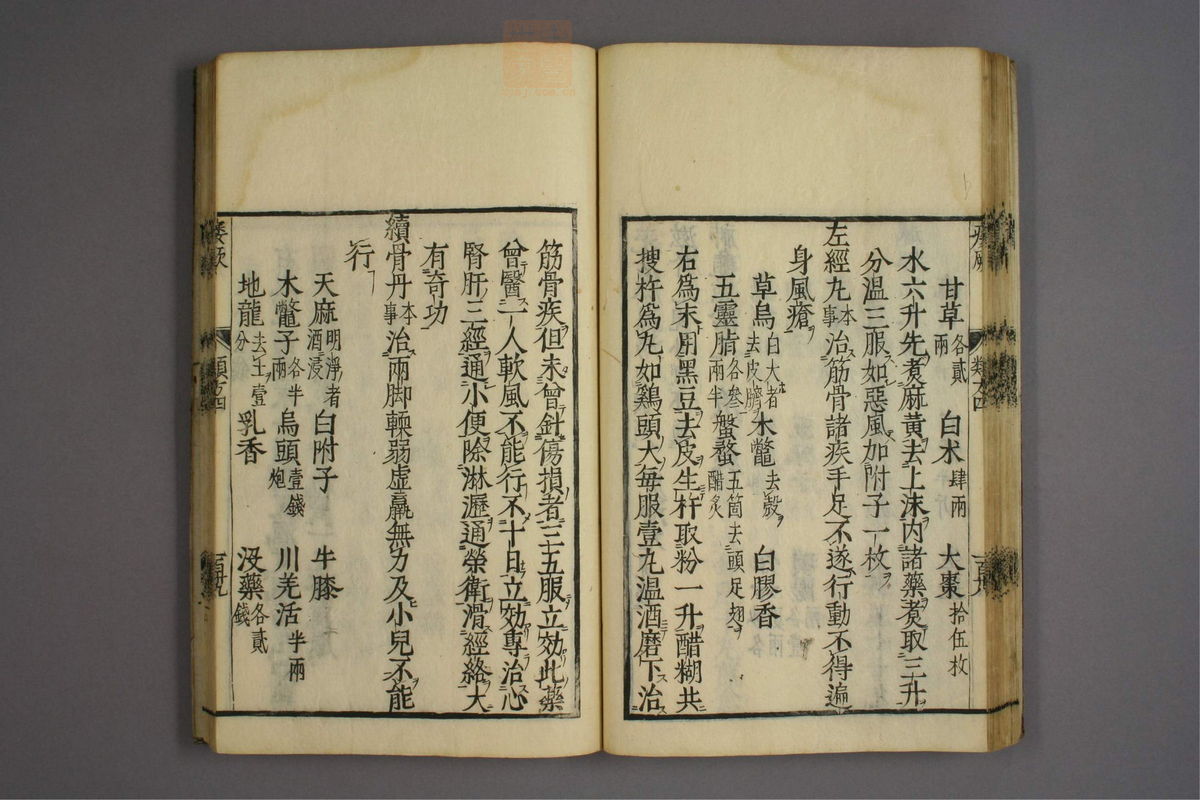 甘草各貳兩 白朮肆兩 大棗拾伍枚
水六升先煑麻黃去上沫内諸藥煑取三升
分温三服如惡風加附子一枚
左經丸本事治筋骨諸疾手足不遂行動不得遍
身風瘡
草烏白大者去皮臍 木鼈去殼 白膠香
五靈脂各叁兩半 螌蝥五箇去頭足翅醋炙
右爲末用黑豆去皮生杵取粉一升醋糊共
搜杵爲丸如鷄頭大每服壹丸温酒磨下治
筋骨疾但未曾針傷損者三五服立効此藥
曾醫一人軟風不能行不十日立効專治心
腎肝三經通小便除淋瀝通榮衛滑經絡大
有奇功
續骨丹本事治兩脚軟弱虚羸無力及小兒不能
行
天麻明淨者酒浸 白附子 牛膝
木鼈子各半兩 烏頭壹錢炮 川羌活半兩
地龍去土壹分 乳香 没藥各貳錢